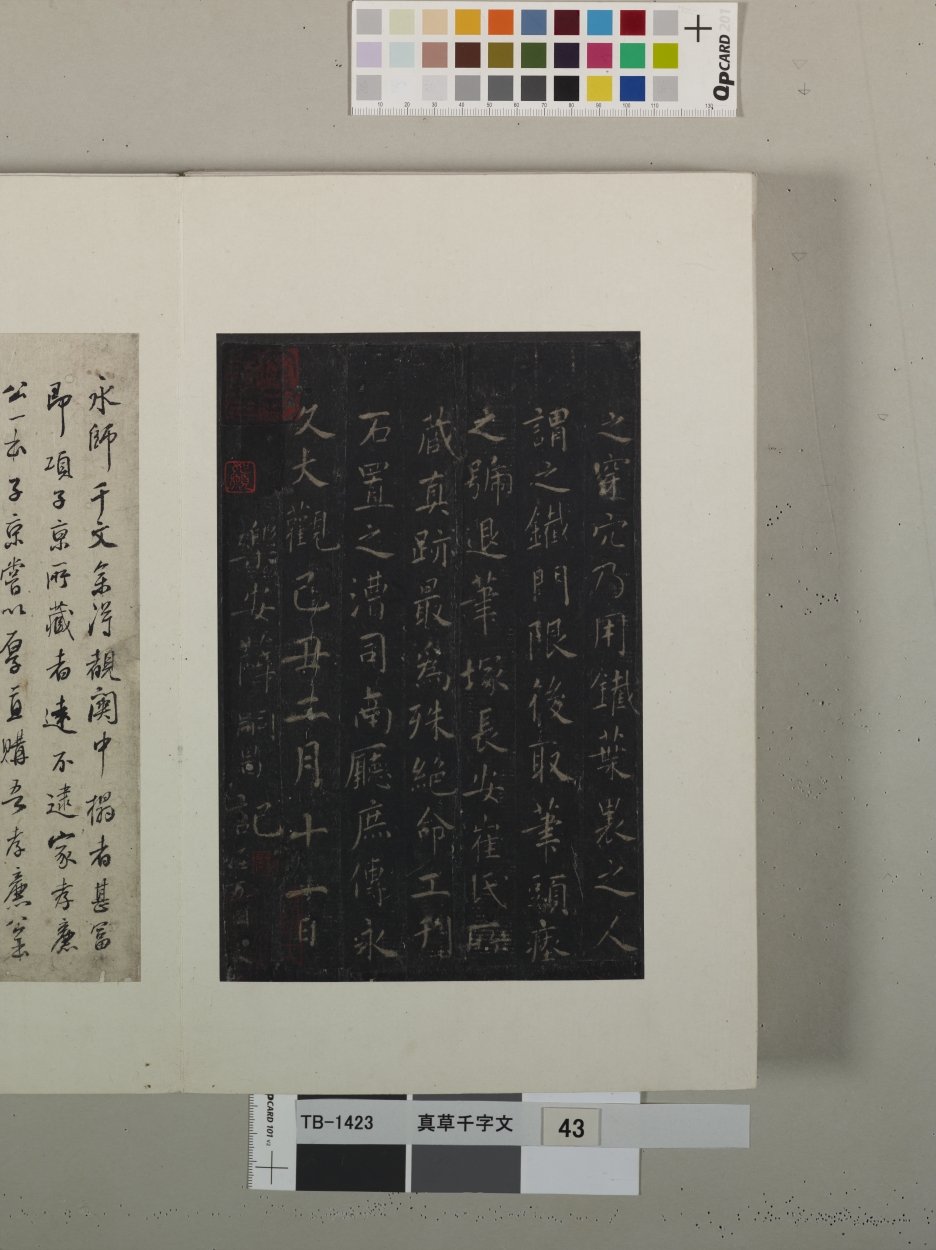 之穿穴乃用鐵葉裹之人
謂之鐵門限後取筆頭瘞
之號退筆塚長安崔氏所
藏真跡最為殊絕命工刊
石置之漕司南廳庶傳永
久大觀己丑二月十一日
樂安薛嗣昌記
永師千文余得覩奧中榻者甚冨
即項子京所藏者遠不逮家孝廉
公一本子京嘗以厚直購吾孝廉公
QPCARD 201
10 20 30 40 50 60 70 80 90 100 110 130
QPCARD 101 v2
TB-1423 真草千字文 43